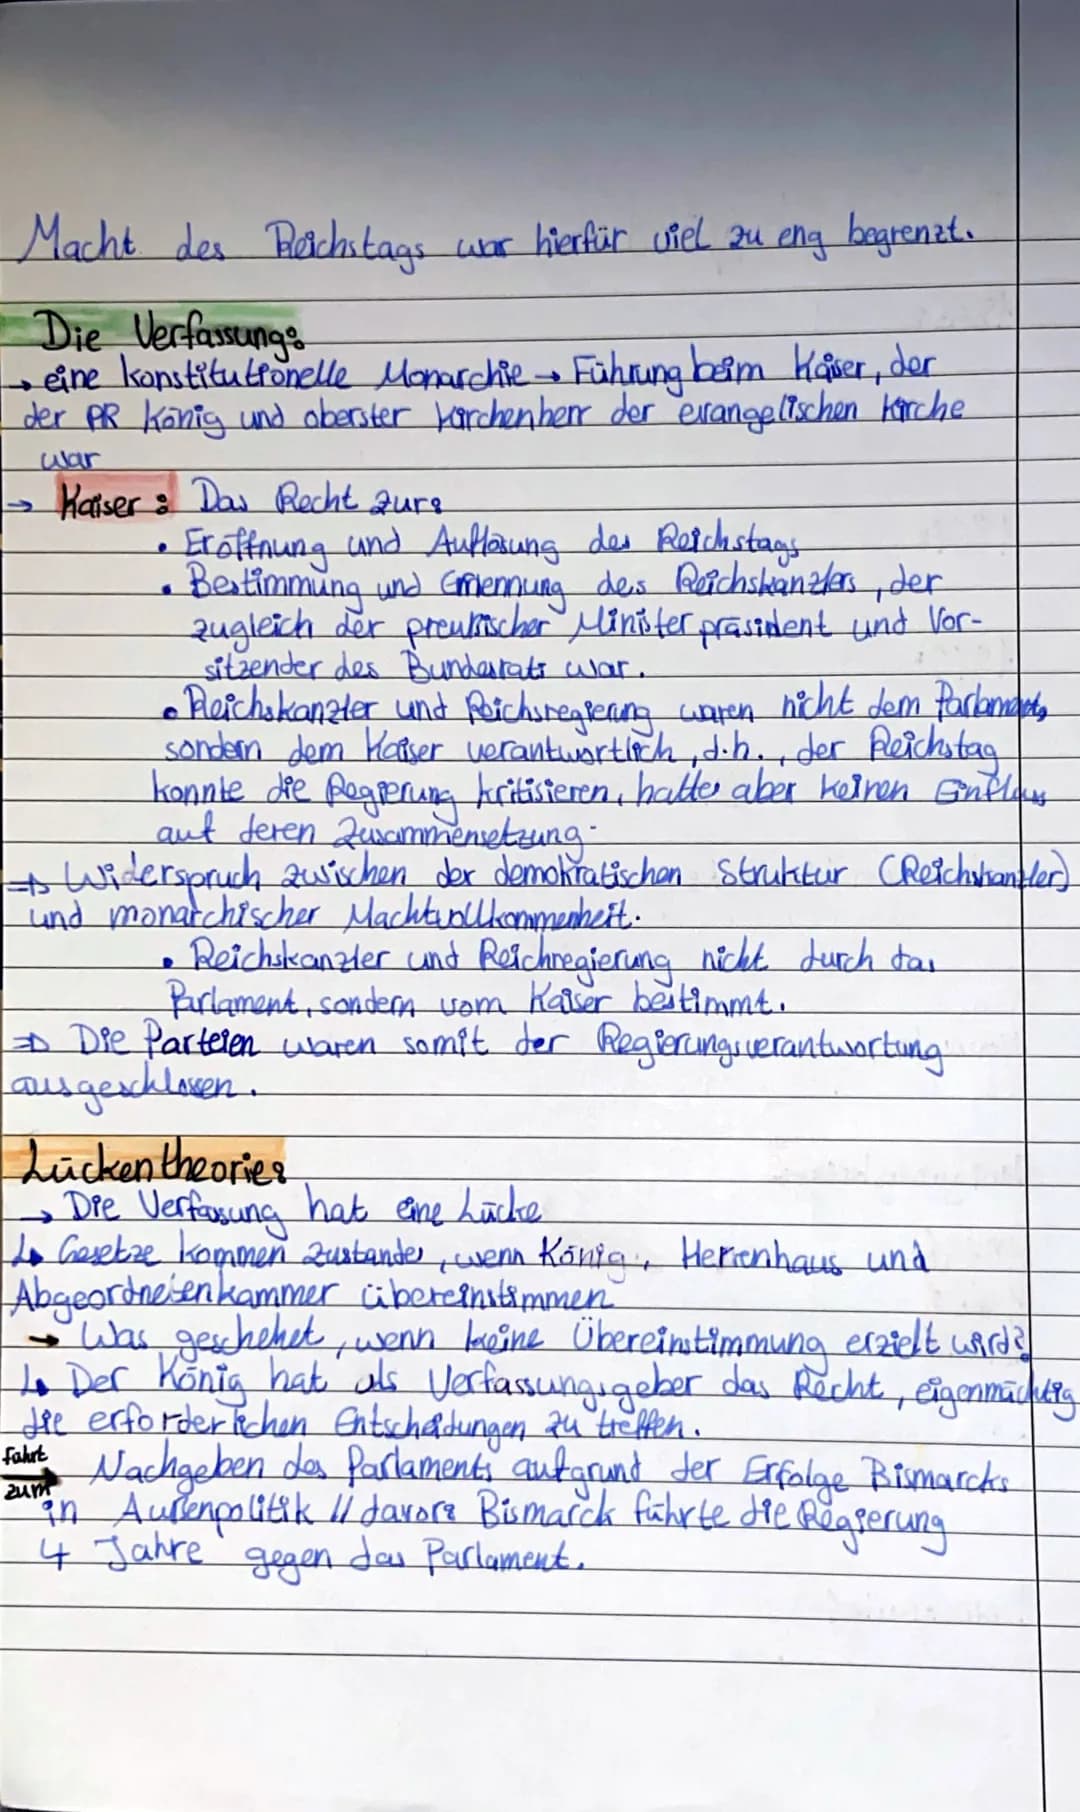 Macht des Reichstags war hierfür viel zu eng begrenzt.
Die Verfassung:
→ eine konstitutionelle Monarchie → Führung beim Kaiser, der
der PR König und oberster Kirchenherr der evangelischen Kirche
war
→ Kaiser: Das Recht zur:
• Eröffnung und Auflösung des Reichstags
• Bestimmung und Ernennung des Reichskanzlers, der
zugleich der preußischer Ministerpräsident und Vor-
sitzender des Bundesrats war.
• Reichskanzler und Reichsregierung waren nicht dem Parlament,
sondern dem Kaiser verantwortlich, d.h., der Reichstag
konnte die Regierung kritisieren, hatte aber keinen Einfluss
auf deren Zusammensetzung.
⇒ Widerspruch zwischen der demokratischen Struktur (Reichskanzler)
und monarchischer Machtvollkommenheit.
• Reichskanzler und Reichregierung nicht durch das
Parlament, sondern vom Kaiser bestimmt.
⇒ Die Parteien waren somit der Regierungsverantwortung
ausgeschlossen.
Lückentheorie:
→ Die Verfassung hat eine Lücke
↳ Gesetze kommen zustande, wenn König, Herrenhaus und
Abgeordnetenkammer übereinstimmen
→ Was geschehet, wenn keine Übereinstimmung erzielt wird?
↳ Der König hat als Verfassungsgeber das Recht, eigenmächtig
die erforderlichen Entscheidungen zu treffen.
fahrt zum → Nachgeben des Parlaments aufgrund der Erfolge Bismarcks
in Außenpolitik // davor: Bismarck führte die Regierung
4 Jahre gegen das Parlament.